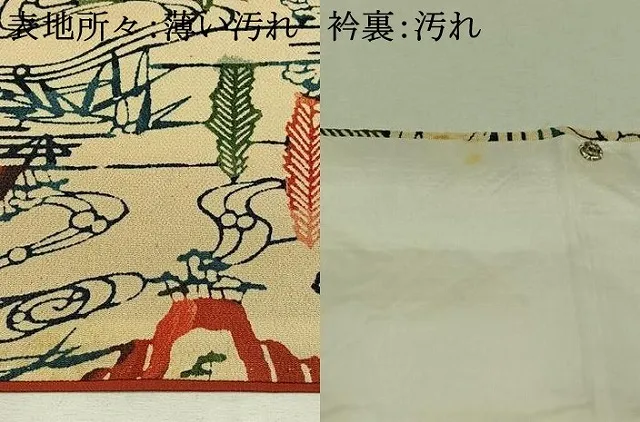 表地所々：薄い汚れ
衿裏：汚れ